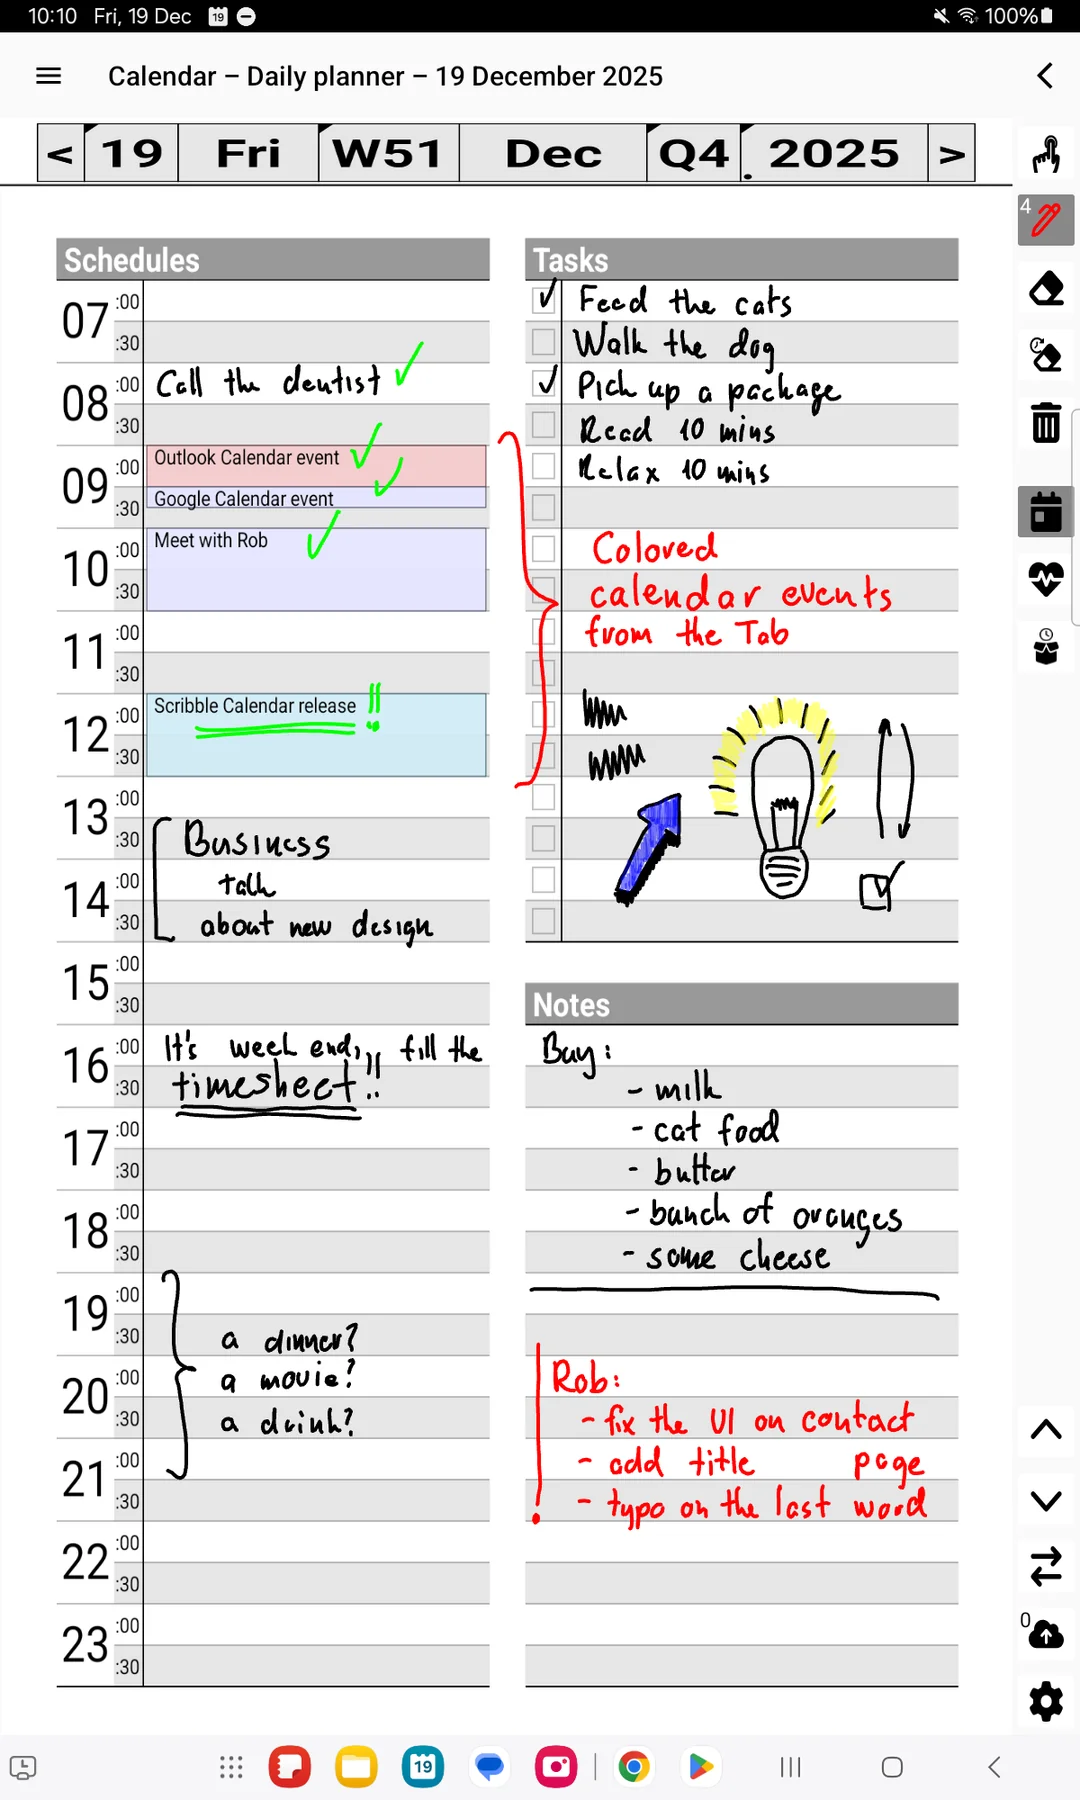 10:10 Fri, 19 Dec 19 100%
Calendar – Daily planner – 19 December 2025
< 19 Fri W51 Dec Q4 2025 >
Schedules
07 :00
:30
08 :00 Call the dentist
:30
09 :00 Outlook Calendar event
:30 Google Calendar event
10 :00 Meet with Rob
:30
11 :00
:30
12 :00 Scribble Calendar release !!
:30
13 :00
:30 Business
14 :00 talk
:30 about new design
15 :00
:30
16 :00 It's week end, fill the
:30 timesheet!!
17 :00
:30
18 :00
:30
19 :00
:30 a dinner?
20 :00 a movie?
:30 a drink?
21 :00
:30
22 :00
:30
23 :00
:30
Tasks
Feed the cats
Walk the dog
Pick up a package
Read 10 mins
Relax 10 mins
Colored
calendar events
from the Tab
Notes
Buy:
- milk
- cat food
- butter
- bunch of oranges
- some cheese
Rob:
- fix the UI on contact
- add title page
- typo on the last word
4
0
19